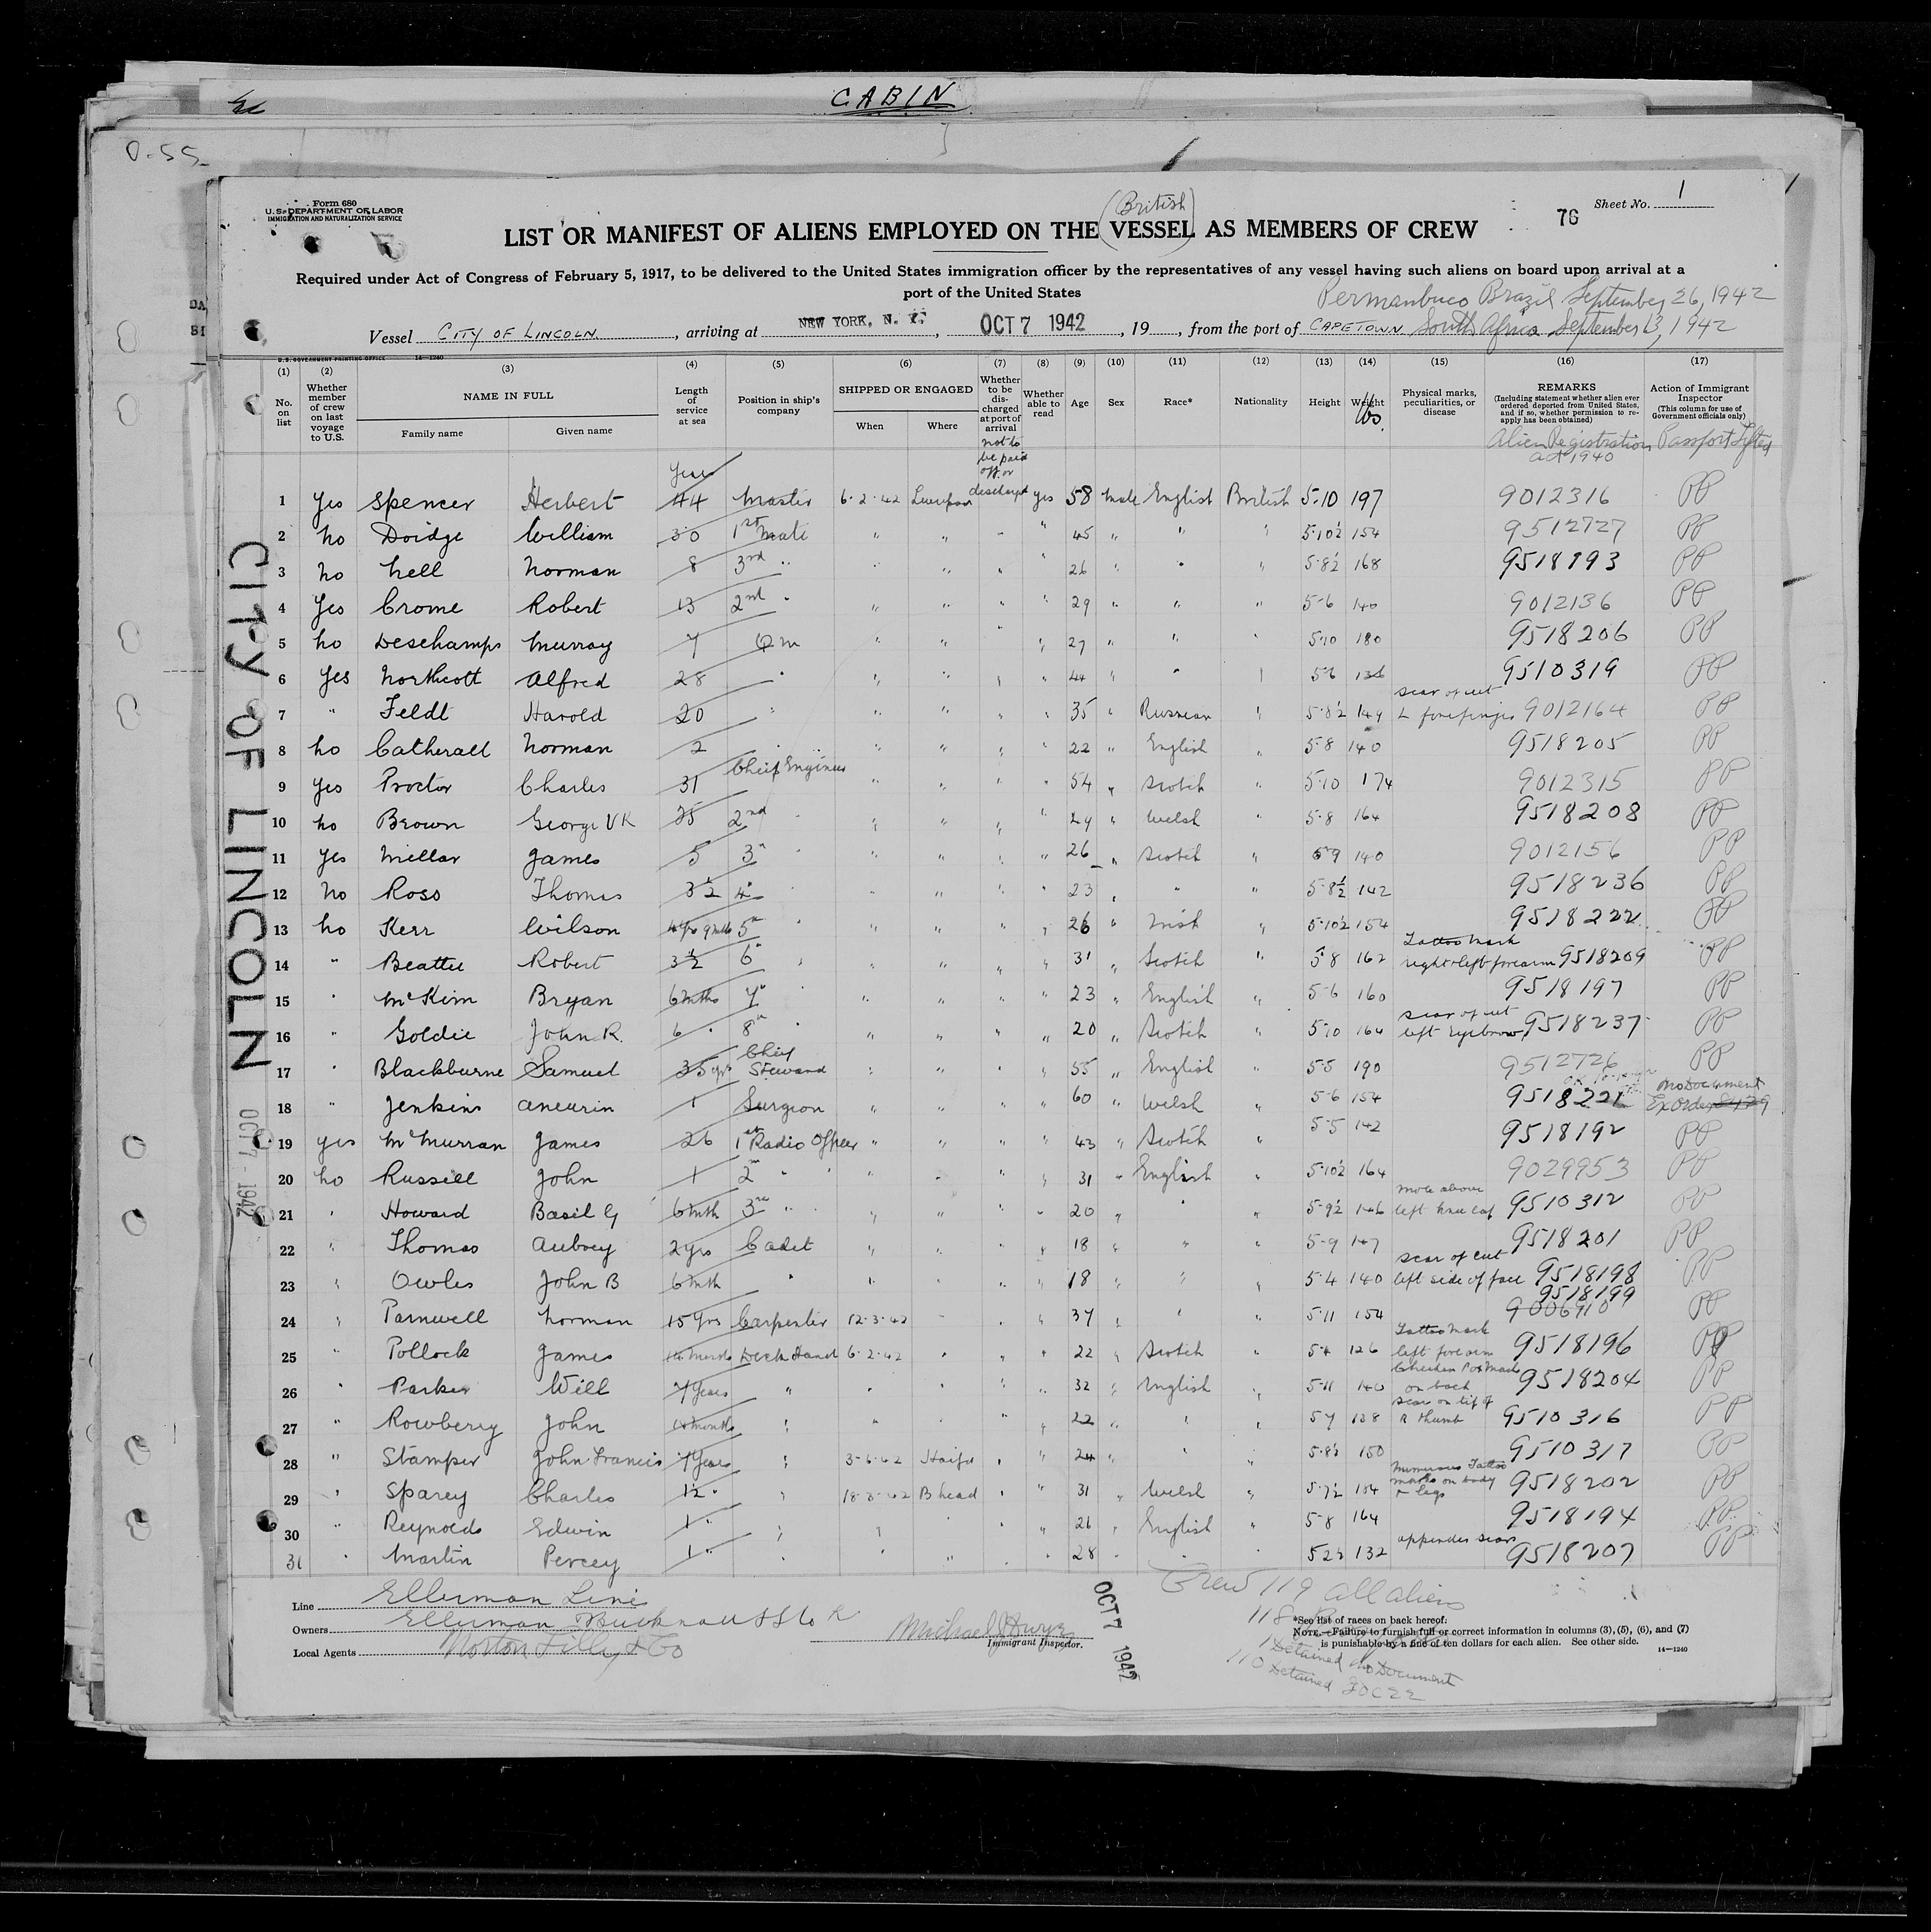 CABIN
O-55
Form 680
U.S. DEPARTMENT OF LABOR
IMMIGRATION AND NATURALIZATION SERVICE
(British)
76
Sheet No. 1
LIST OR MANIFEST OF ALIENS EMPLOYED ON THE VESSEL AS MEMBERS OF CREW
Required under Act of Congress of February 5, 1917, to be delivered to the United States immigration officer by the representatives of any vessel having such aliens on board upon arrival at a
port of the United States
Permanbuco Brazil September 26, 1942
Vessel CITY OF LINCOLN, arriving at NEW YORK, N. Y., OCT 7 1942, 19, from the port of CAPETOWN South Africa September 13, 1942
U.S. GOVERNMENT PRINTING OFFICE 14-1240
(1) No. on list
(2) Whether member of crew on last voyage to U.S.
(3) NAME IN FULL Family name Given name
(4) Length of service at sea
(5) Position in ship's company
(6) SHIPPED OR ENGAGED When Where
(7) Whether to be discharged at port of arrival
(8) Whether able to read
(9) Age
(10) Sex
(11) Race*
(12) Nationality
(13) Height
(14) Weight lbs.
(15) Physical marks, peculiarities, or disease
(16) REMARKS (Including statement whether alien ever ordered deported from United States, and if so, whether permission to reapply has been obtained)
(17) Action of Immigrant Inspector (This column for use of Government officials only)
Alien Registration act 1940
Passport Lifted
not to be paid off or discharged
Years
1 Yes Spencer Herbert 44 Master 6-2-42 Liverpool yes 58 Male English British 5-10 197 9012316 PP
2 No Doidge William 30 1st Mate " " - " 45 " " " 5-10½ 154 9512727 PP
3 No Nell Norman 8 3rd " " " " " 26 " " " 5-8½ 168 9518193 PP
4 Yes Crome Robert 13 2nd " " " " " 29 " " " 5-6 140 9012136 PP
5 No Deschamps Murray 7 Q M " " " " 27 " " " 5-10 180 9518206 PP
6 Yes Northcott Alfred 28 " " " " " 44 " " " 5-6 136 9510319 PP
7 " Feldt Harold 20 " " " " " 35 " Russian " 5-8½ 149 Scar of cut L forefinger 9012164 PP
8 No Catherall Norman 2 " " " " " 22 " English " 5-8 140 9518205 PP
9 Yes Proctor Charles 31 Cheif Engineer " " " " 54 " Scotch " 5-10 174 9012315 PP
10 No Brown George V K 25 2nd " " " " " 29 " Welsh " 5-8 164 9518208 PP
11 Yes Millar James 5 3" " " " " " 26 " Scotch " 5-9 140 9012156 PP
12 No Ross Thomas 3½ 4" " " " " " 23 " " " 5-8½ 142 9518236 PP
13 No Kerr Wilson 4yrs 9mths 5" " " " " " 26 " Irish " 5-10½ 154 9518222 PP
14 " Beattie Robert 3½ 6" " " " " " 31 " Scotch " 5-8 162 Tattoo Mark right & left forearm 9518209 PP
15 " McKim Bryan 6 Mths 7" " " " " " 23 " English " 5-6 160 9518197 PP
16 " Goldie John R. 6 " 8" " " " " " 20 " Scotch " 5-10 164 Scar of cut left Eyebrow 9518237 PP
17 " Blackburne Samuel 35 yrs Cheif Steward " " " " 55 " English " 5-5 190 9512726 PP
18 " Jenkins Aneurin 1 Surgeon " " " " 60 " Welsh " 5-6 154 9518221 No Document Ex Order 8429
19 Yes McMurran James 26 1st Radio Officer " " " " 43 " Scotch " 5-5 142 9518192 PP
20 No Russell John 1 2" " " " " " 31 " English " 5-10½ 164 9029953 PP
21 " Howard Basil G 6 mth 3rd " " " " " 20 " " " 5-9½ 146 Mole above left knee cap 9510312 PP
22 " Thomas Aubrey 2 yrs Cadet " " " " 18 " " " 5-9 147 9518201 PP
23 " Owles John B 6 mth " " " " " 18 " " " 5-4 140 Scar of cut left side of face 9518198 PP
24 " Parnwell Norman 15 yrs Carpenter 12-3-42 " " " 37 " " " 5-11 154 9518199 9006910 PP
25 " Pollock James Deck Hand 6-2-42 " " " 22 " Scotch " 5-4 126 Tattoo Mark left forearm 9518196 PP
26 " Parker Will 7 years " " " " " 32 " English " 5-11 140 Chicken Pox Mark on back 9518204 PP
27 " Rowberry John " " " " " 22 " " " 5-7 128 Scar on tip of R thumb 9510316 PP
28 " Stamper John Francis 7 Years " 3-6-42 Haifa " " 24 " " " 5-8½ 150 9510317 PP
29 " Sparey Charles 1½ " " B head " " 31 " Welsh " 5-7½ 154 Numerous Tattoo marks on body & legs 9518202 PP
30 " Reynolds Edwin 1 " " " " " " 26 " English " 5-8 164 9518194 PP
31 " Martin Percey 1 " " " " " " 28 " " " 5-2½ 132 appendix scar 9518207 PP
CITY OF LINCOLN
OCT 7 - 1942
Line Ellerman Line
Owners Ellerman Bucknall SS Co
Local Agents Norton Lilly & Co
Immigrant Inspector.
OCT 7 1942
Crew 119 all aliens
118
1 Detained no Document
110 Detained
*See list of races on back hereof.
NOTE.—Failure to furnish full or correct information in columns (3), (5), (6), and (7)
is punishable by a fine of ten dollars for each alien. See other side.
14-1240